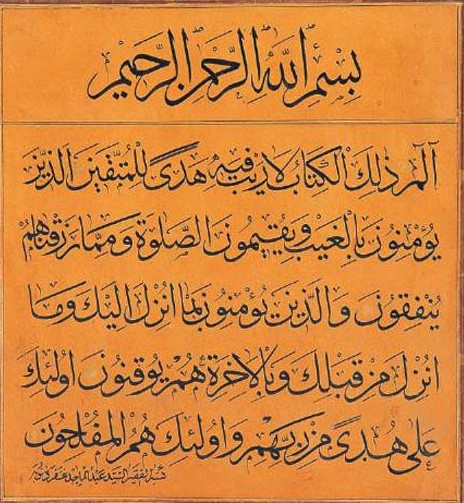 بسم الله الرحمن الرحيم
الم ذلك الكتاب لا ريب فيه هدى للمتقين الذين
يؤمنون بالغيب ويقيمون الصلوة ومما رزقناهم
ينفقون والذين يؤمنون بما انزل اليك وما
انزل من قبلك وبالاخرة هم يوقنون اولئك
على هدى من ربهم واولئك هم المفلحون